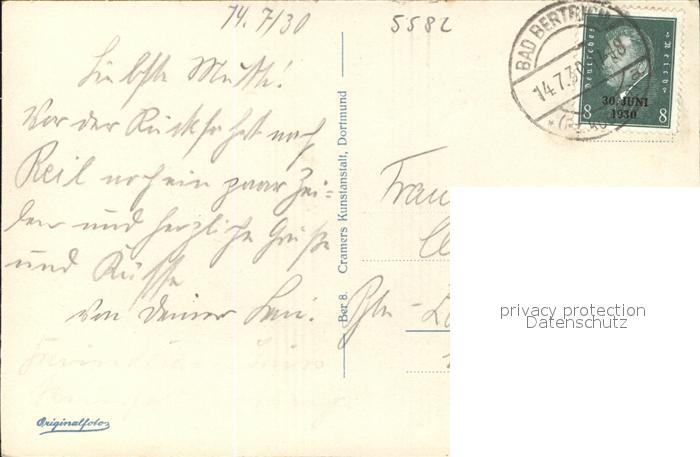 14.7/30
5582
Liebste Mutti!
Vor der Rückfahrt nach
Reil noch ein paar Zei=
len und herzliche Grüße
und Küsse
von Deiner
Originalfoto
Ber 8. Cramers Kunstanstalt, Dortmund
BAD BERTRICH
14.7.30
Deutsches Reich
30. JUNI
1930
8 8
Frau
Bln -
privacy protection
Datenschutz